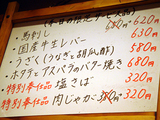 馬刺し 650円 620円
国産牛生レバー 630円
うざく(うなぎと胡瓜酢) 580円
ホタテとアスパラのバター焼き 680円
特別奉仕品 塩さば 320円
特別奉仕品 肉じゃが 350円 320円